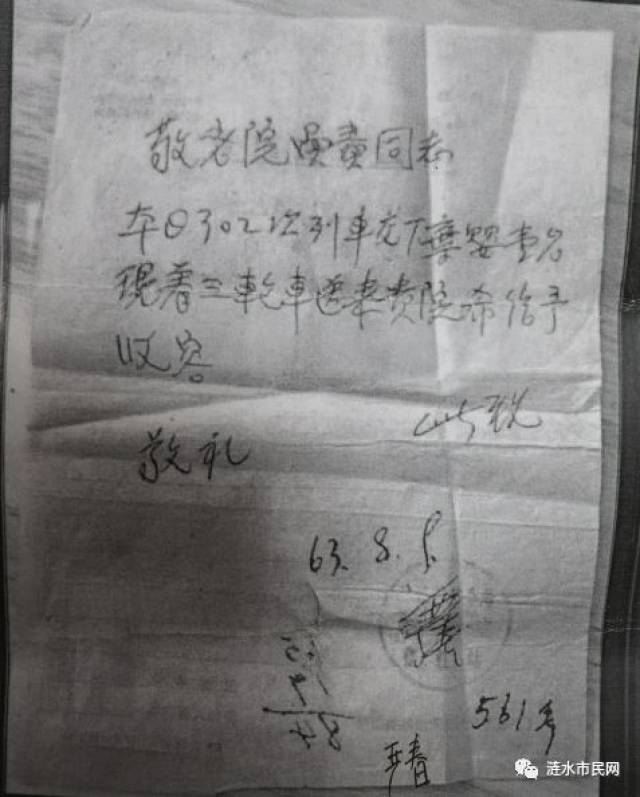 敬老院负责同志
本日302次列车交下弃婴壹名
现着三轮车送来贵院希给予
收容
此致
敬礼
63.8.5
561号
涟水市民网